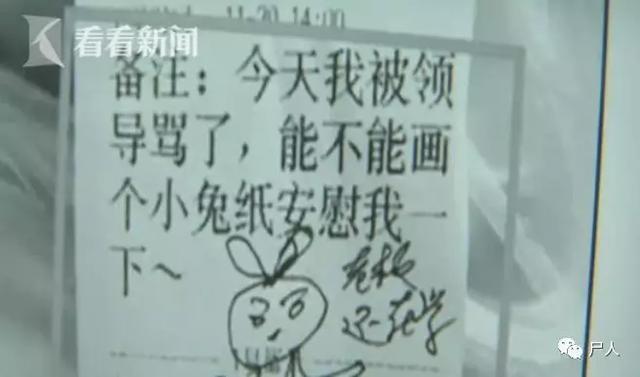 11-20 14:00
看看新闻
备注：今天我被领
导骂了，能不能画
个小兔纸安慰我一
下～
老板
还在学
尸人